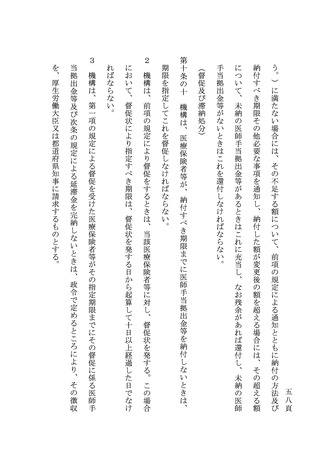 う。）に満たない場合には、その不足する額について、前項の規定による通知とともに納付の方法及び
納付すべき期限その他必要な事項を通知し、納付した額が変更後の額を超える場合には、その超える額
について、未納の医師手当拠出金等があるときはこれに充当し、なお残余があれば還付し、未納の医師
手当拠出金等がないときはこれを還付しなければならない。
（督促及び滞納処分）
第十条の十　機構は、医療保険者等が、納付すべき期限までに医師手当拠出金等を納付しないときは、
期限を指定してこれを督促しなければならない。
２　機構は、前項の規定により督促をするときは、当該医療保険者等に対し、督促状を発する。この場合
において、督促状により指定すべき期限は、督促状を発する日から起算して十日以上経過した日でなけ
ればならない。
３　機構は、第一項の規定による督促を受けた医療保険者等がその指定期限までにその督促に係る医師手
当拠出金等及び次条の規定による延滞金を完納しないときは、政令で定めるところにより、その徴収
を、厚生労働大臣又は都道府県知事に請求するものとする。
五八頁